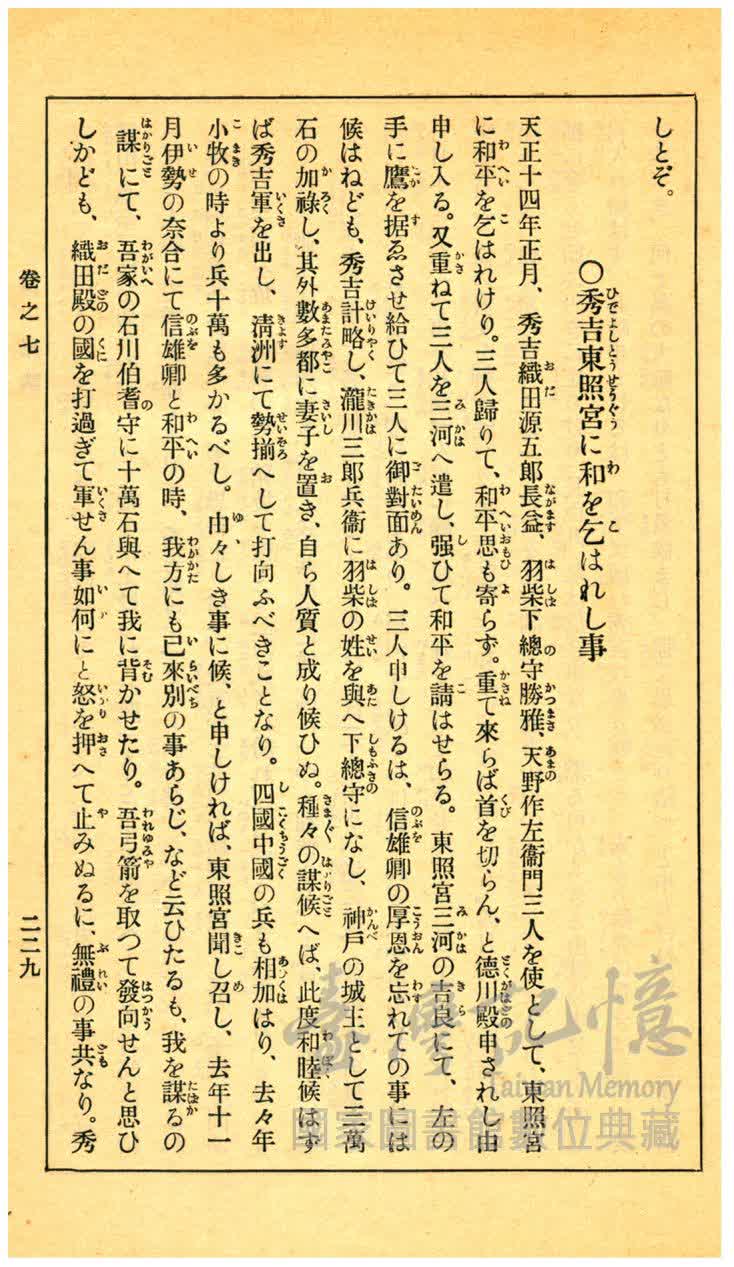 しとぞ。
○秀吉東照宮に和を乞はれし事
天正十四年正月、秀吉織田源五郎長益、羽柴下總守勝雅、天野作左衞門三人を使として、東照宮
に和平を乞はれけり。三人歸りて、和平思も寄らず。重て來らば首を切らん、と德川殿申されし由
申し入る。又重ねて三人を三河へ遣し、强ひて和平を請はせらる。東照宮三河の吉良にて、左の
手に鷹を据ゑさせ給ひて三人に御對面あり。三人申しけるは、信雄卿の厚恩を忘れての事には
候はねども、秀吉計略し、瀧川三郎兵衞に羽柴の姓を與へ下總守になし、神戶の城主として三萬
石の加祿し、其外數多都に妻子を置き、自ら人質と成り候ひぬ。種々の謀候へば、此度和睦候はず
ば秀吉軍を出し、淸洲にて勢揃へして打向ふべきことなり。四國中國の兵も相加はり、去々年
小牧の時より兵十萬も多かるべし。由々しき事に候、と申しければ、東照宮聞し召し、去年十一
月伊勢の奈合にて信雄卿と和平の時、我方にも已來別の事あらじ、など云ひたるも、我を謀るの
謀にて、吾家の石川伯耆守に十萬石與へて我に背かせたり。吾弓箭を取つて發向せんと思ひ
しかども、織田殿の國を打過ぎて軍せん事如何にと怒を押へて止みぬるに、無禮の事共なり。秀
卷之七
二二九
臺灣記憶
Taiwan Memory
國家圖書館數位典藏